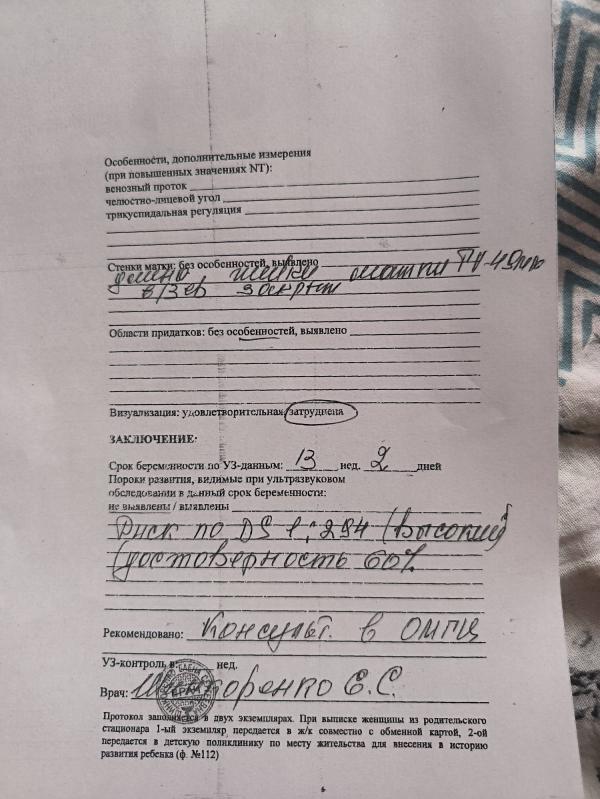 Особенности, дополнительные измерения
(при повышенных значениях NT):
венозный проток
челюстно-лицевой угол
трикуспидальная регуляция
Стенки матки: без особенностей, выявлено
длина шейки матки ТV-49мм
в/зев закрыт
Области придатков: без особенностей, выявлено
Визуализация: удовлетворительная/затруднена
ЗАКЛЮЧЕНИЕ:
Срок беременности по УЗ-данным: 13 нед. 2 дней
Пороки развития, видимые при ультразвуковом
обследовании в данный срок беременности:
не выявлены / выявлены
Риск по DS 1:294 (высокий)
(достоверность 60%
Рекомендовано: Консульт. в ОМГЦ
УЗ-контроль в: нед.
Врач: Е.С.
Протокол заполняется в двух экземплярах. При выписке женщины из родительского
стационара 1-ый экземпляр передается в ж/к совместно с обменной картой, 2-ой
передается в детскую поликлинику по месту жительства для внесения в историю
развития ребенка (ф. №112)